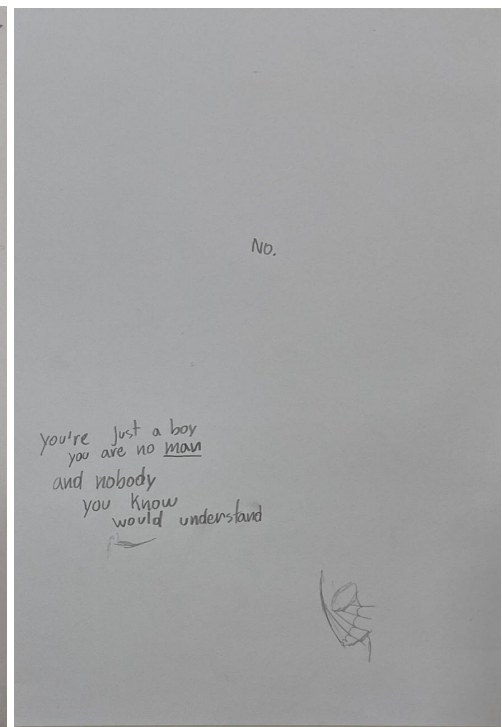 No.
you're just a boy
you are no man
and nobody
you know
would understand